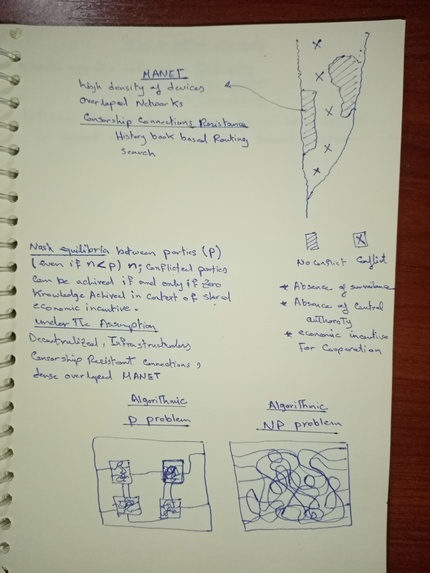 MANET
high density of devices
overlaped Networks
Censorship Connections Resistance
History book based Routing
search
No Conflict Conflict
* Absence of surveilance
* Absence of Central
authoraty
* economic incentive
For Cooperation
Nash equilibria between parties (P)
(even if n<p) n; conflicted parties
can be achived if and only if Zero
Knowledge Achived in context of shared
economic incentive.
under The Assumption
Decentralized, Infrastructurless
Censorship Resistant Connections,
dense overlaped MANET
Algorithmic
P problem
Algorithmic
NP problem